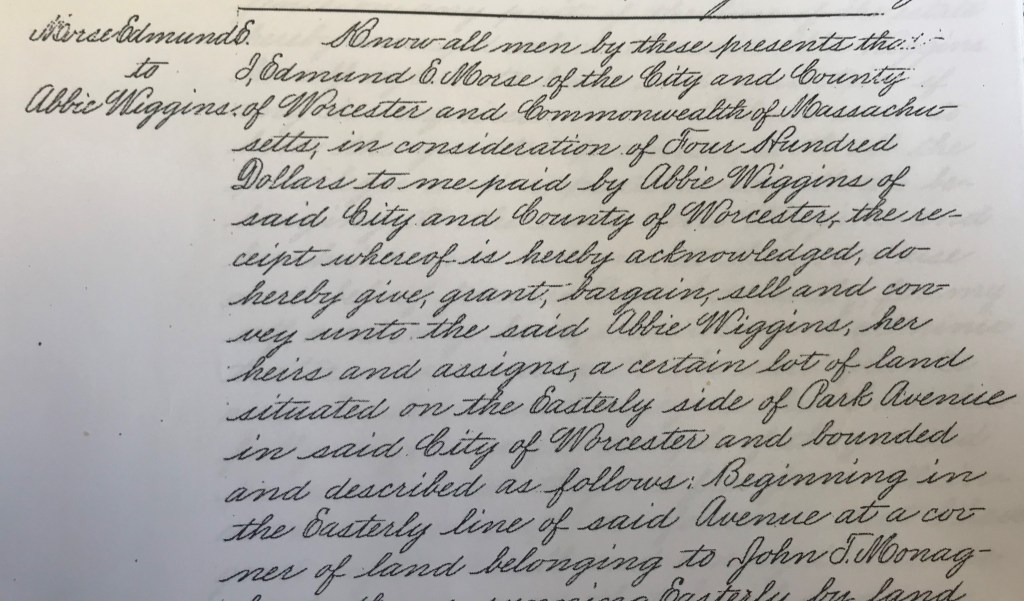 Morse Edmund E.
to
Abbie Wiggins.
Know all men by these presents that
I, Edmund E. Morse of the City and County
of Worcester and Commonwealth of Massachu-
setts, in consideration of Four Hundred
Dollars to me paid by Abbie Wiggins of
said City and County of Worcester, the re-
ceipt whereof is hereby acknowledged, do
hereby give, grant, bargain, sell and con-
vey unto the said Abbie Wiggins, her
heirs and assigns, a certain lot of land
situated on the Easterly side of Park Avenue
in said City of Worcester and bounded
and described as follows: Beginning in
the Easterly line of said Avenue at a cor-
ner of land belonging to John T. Monag-
running Easterly by land